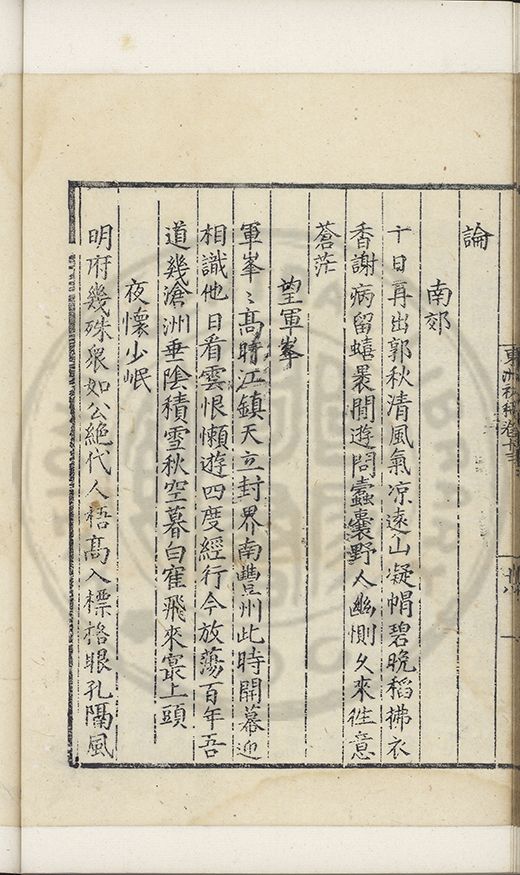 論
南郊
十日再出郭秋清風氣凉遠山凝帽碧晚稻拂衣
香謝病留蟢裹閒遊問蠹囊野人幽惻久來徃意
蒼茫
望軍峯
軍峯〻髙時江鎮天立封界南豐州此時開幕迎
相識他日看雲恨懶遊四度經行今放蕩百年吾
道幾滄洲垂陰積雪秋空暮白寉飛來㝡上頭
夜懷少岷
明府幾殊衆如公絶代人梧髙入標格眼孔隔風